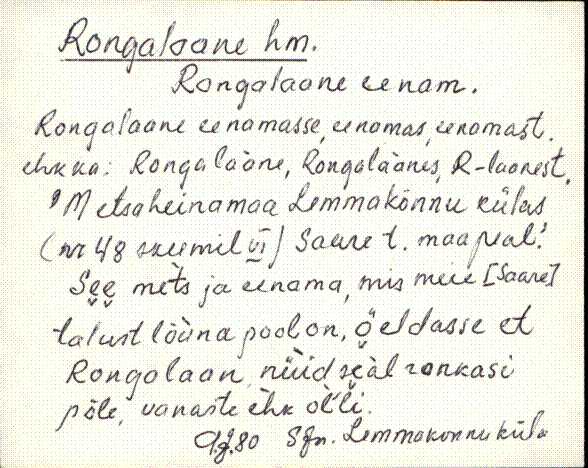 Rongalaane hm.
Rongalaane eenam.
Rongalaane eenamasse, eenamas, eenamast.
ehk ka: Rongalääne, Rongaläänes, R-laanest.
"Metsaheinamaa Lemmakõnnu külas
(nr 48 skeemil VI) Saare t. maa peal."
See mets ja eenama, mis meie [Saare]
talust lõuna pool on, öeldasse et
Rongalaan, nüid seäl ronkasi
põle, vanaste ehk olli.
80 Sfn. Lemmakõnnu küla